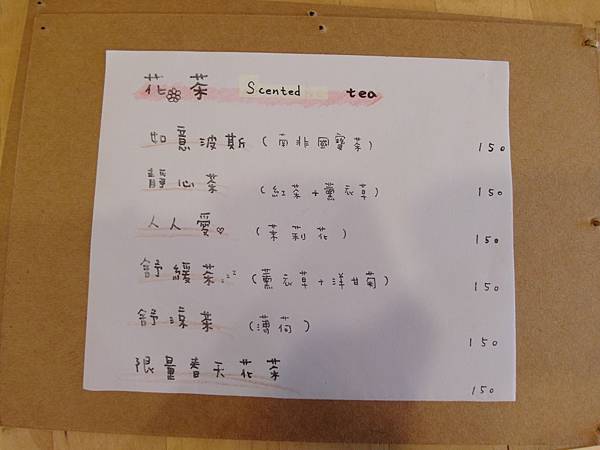 花茶 Scented tea
如意波斯 (南非國寶茶) 150
心茶 (紅茶+薰衣草) 150
人人愛♡ (茉莉花) 150
舒緩茶 (薰衣草+洋甘菊) 150
舒涼茶 (薄荷) 150
限量春天花茶 150